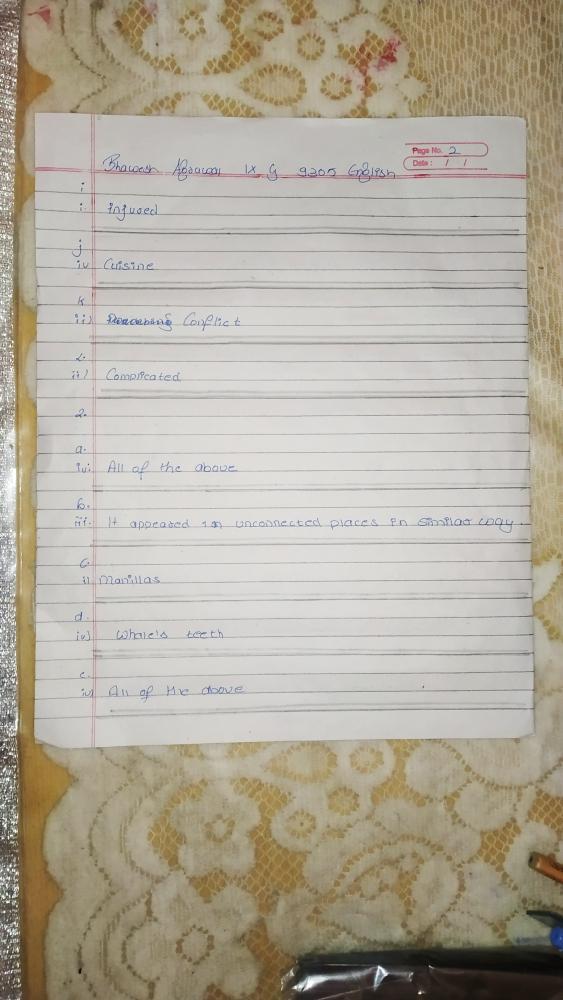 Page No. 2
Date: / /
Bhavesh Agrawal IX G 9205 English
i
i. injured
j
iv Cuisine
k
iii) Conflict
L.
ii) Complicated
2.
a.
iv. All of the above
b.
iii. It appeared in unconnected places in similar way.
c.
i) Manillas
d.
iv) Whale's teeth
e.
iv) All of the above